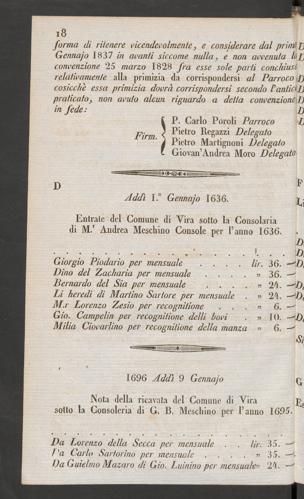 18
forma di ritenere vicendevolmente, e considerare dal primo
Gennajo 1837 in avanti siccome nulla, e non avvenuta la
convenzione 25 marzo 1828 fra esse sole parti conchiusa
relativamente alla primizia da corrispondersi al Parroco
cosicchè essa primizia dovrà corrispondersi secondo l'antico
praticato, non avuto alcun riguardo a detta convenzione
in fede:
P. Carlo Poroli Parroco
Pietro Regazzi Delegato
Firm. Pietro Martignoni Delegato
Giovan'Andrea Moro Delegato
D
Addì 1.° Gennajo 1636.
Entrate del Comune di Vira sotto la Consolaria
di M.r Andrea Meschino Console per l'anno 1636.
Giorgio Piodario per mensuale . . . . . lir. 36. —
Dino del Zacharia per mensuale . . . . . „ 36. —
Bernardo del Sia per mensuale . . . . . „ 24. —
Li heredi di Martino Sartore per mensuale . . „ 24. —
M.r Lorenzo Zesio per recognitione . . . . „ 6. —
Gio. Campelin per recognitione delli bovi . . „ 10. —
Milia Ciovarlino per recognitione della manza „ 6. —
1696 Addì 9 Gennajo
Nota della ricavata del Comune di Vira
sotto la Consoleria di G. B. Meschino per l'anno 1695.
Da Lorenzo della Secca per mensuale . . lir. 35. —
Da Carlo Sartorino per mensuale . . . . „ 35. —
Da Guielmo Mazaro di Gio. Luinino per mensuale „ 24. —